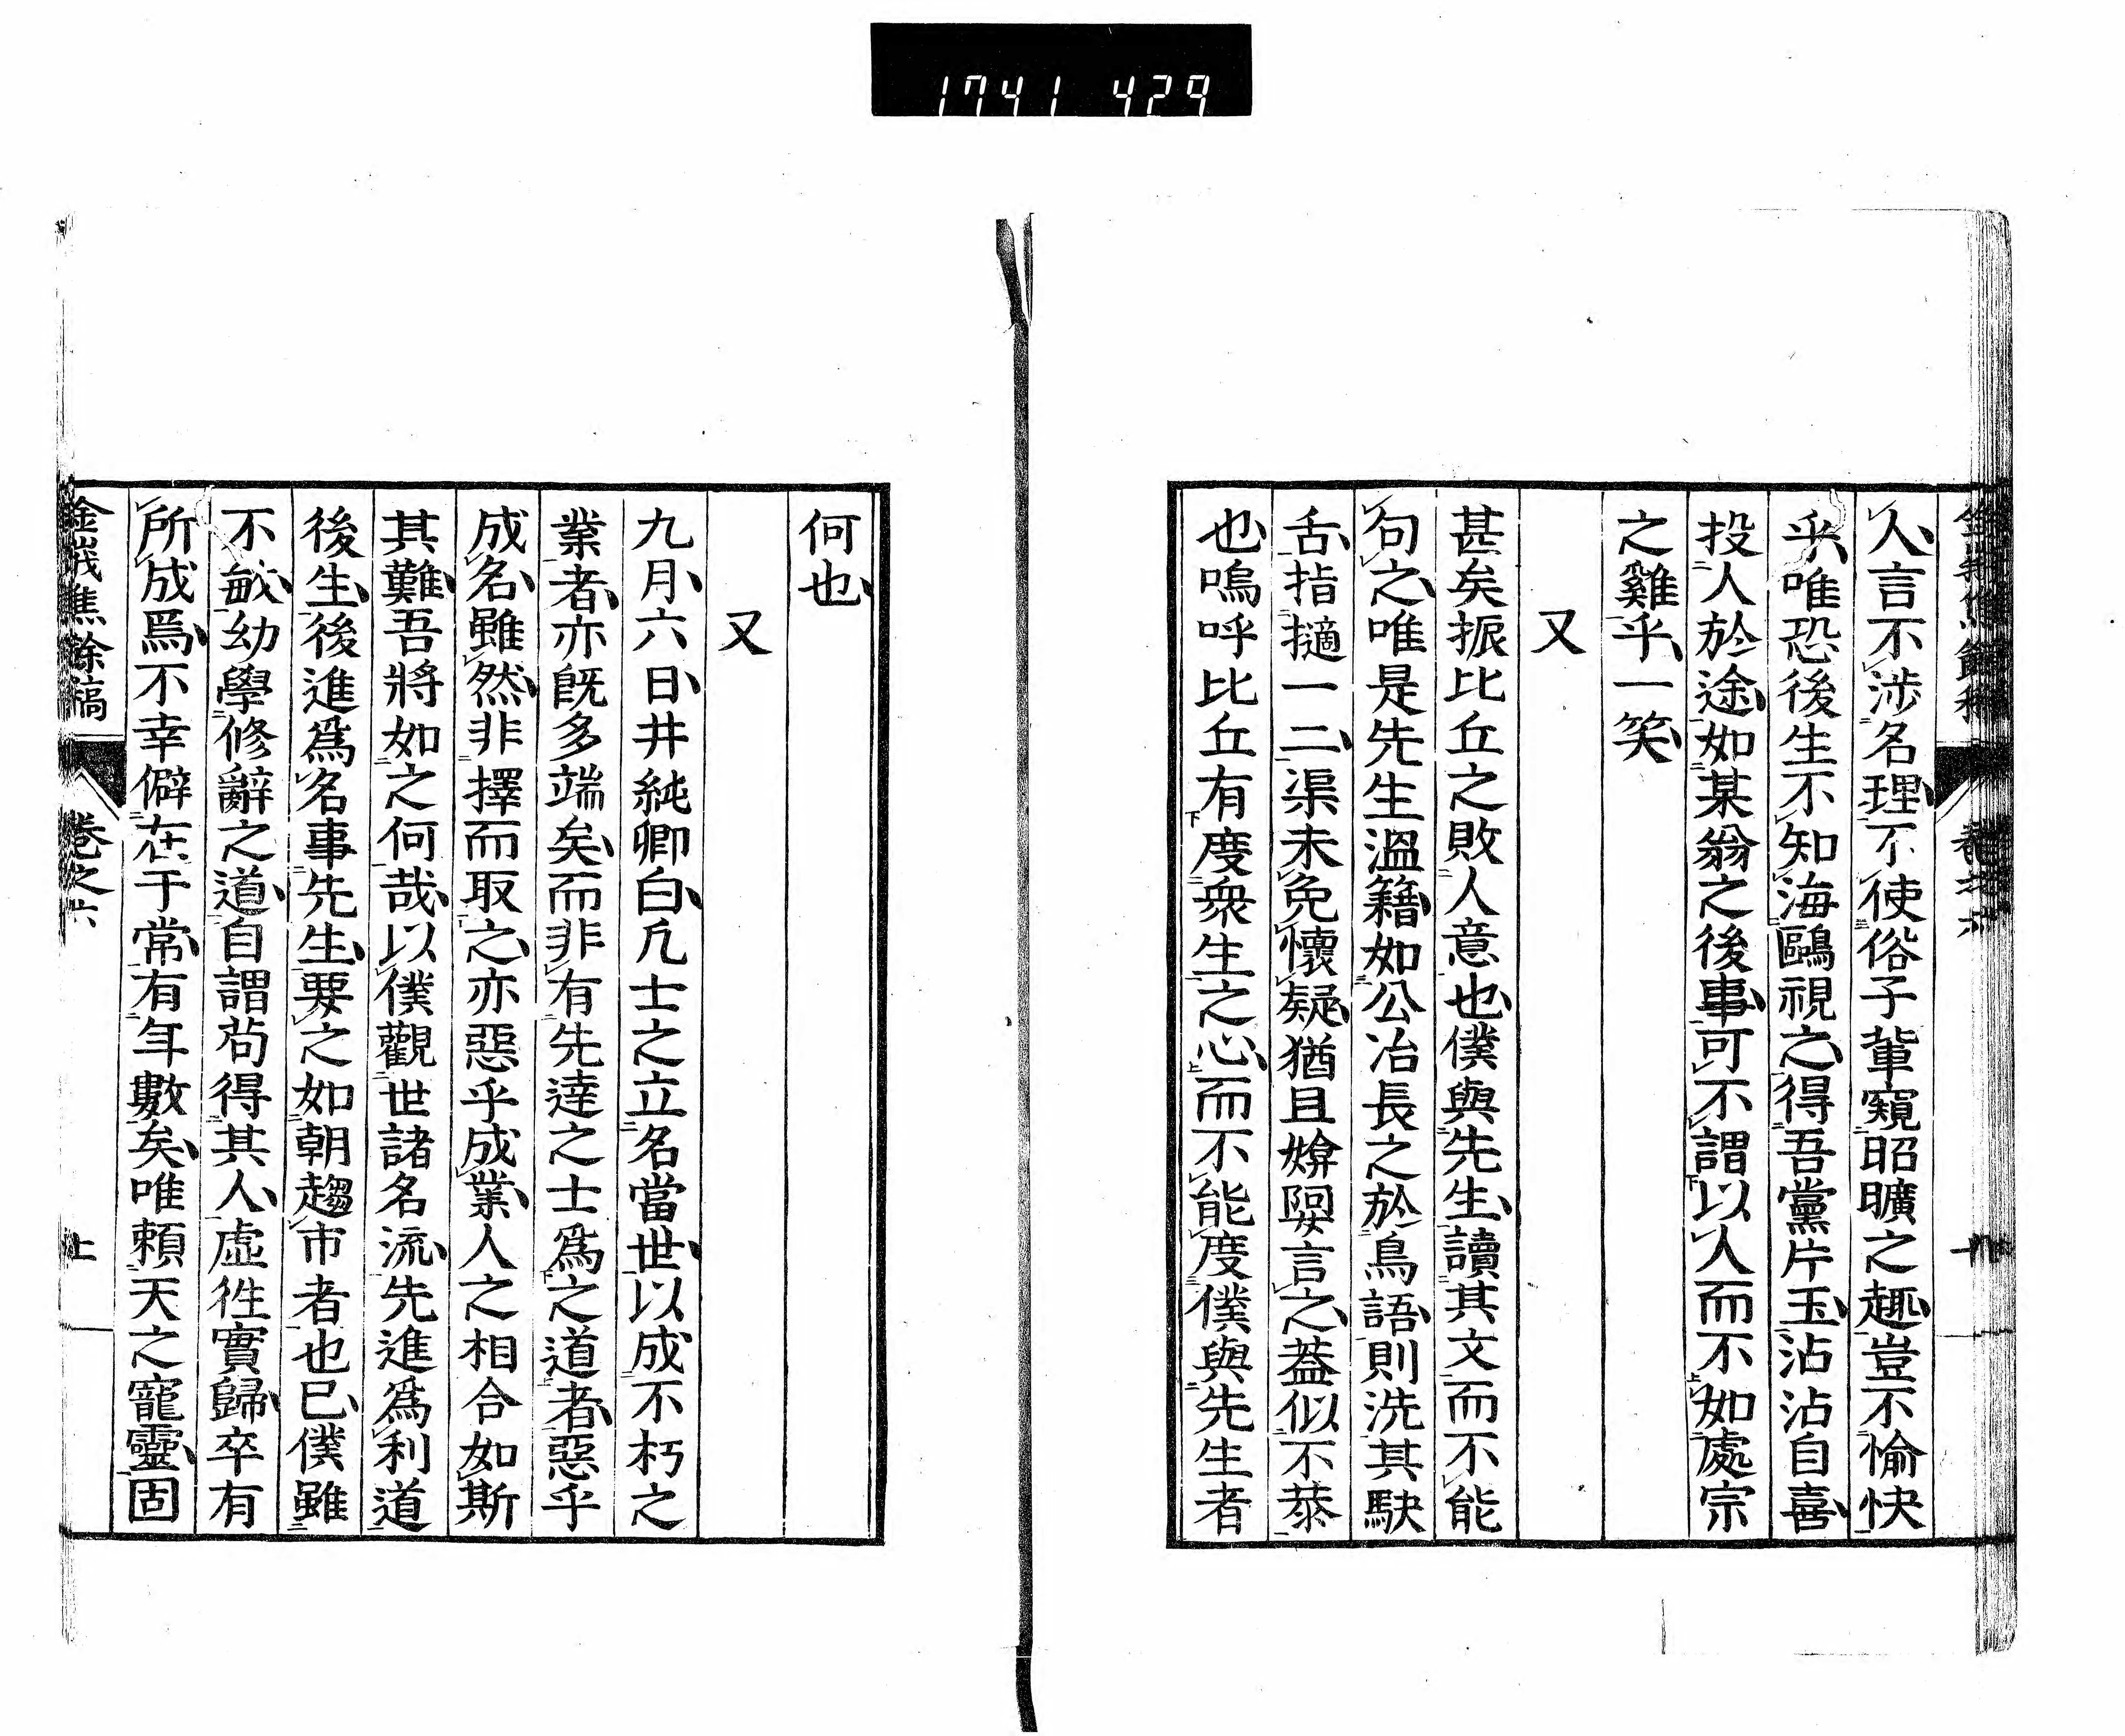 1741 429
人言不涉名理不使俗子輩窺昭曠之趣豈不愉快
乎唯恐後生不知海鷗視之得吾黨片玉沾沾自喜
投人於途如某翁之後事可不謂以人而不如處宗
之雞乎一笑
又
甚矣振比丘之敗人意也僕與先生讀其文而不能
句之唯是先生溫籍如公冶長之於鳥語則洗其駃
舌指擿一二渠未免懷疑猶且媕婀言之蓋似不恭
也嗚呼比丘有度衆生之心而不能度僕與先生者
何也
又
九月六日井純卿白凡士之立名當世以成不朽之
業者亦旣多端矣而非有先達之士爲之道者惡乎
成名雖然非擇而取之亦惡乎成業人之相合如斯
其難吾將如之何哉以僕觀世諸名流先進爲利道
後生後進爲名事先生要之如朝趨市者也已僕雖
不敏幼學修辭之道自謂苟得其人虛徃實歸卒有
所成焉不幸僻在于常有年數矣唯賴天之寵靈固
金峨焦餘稿 卷之六